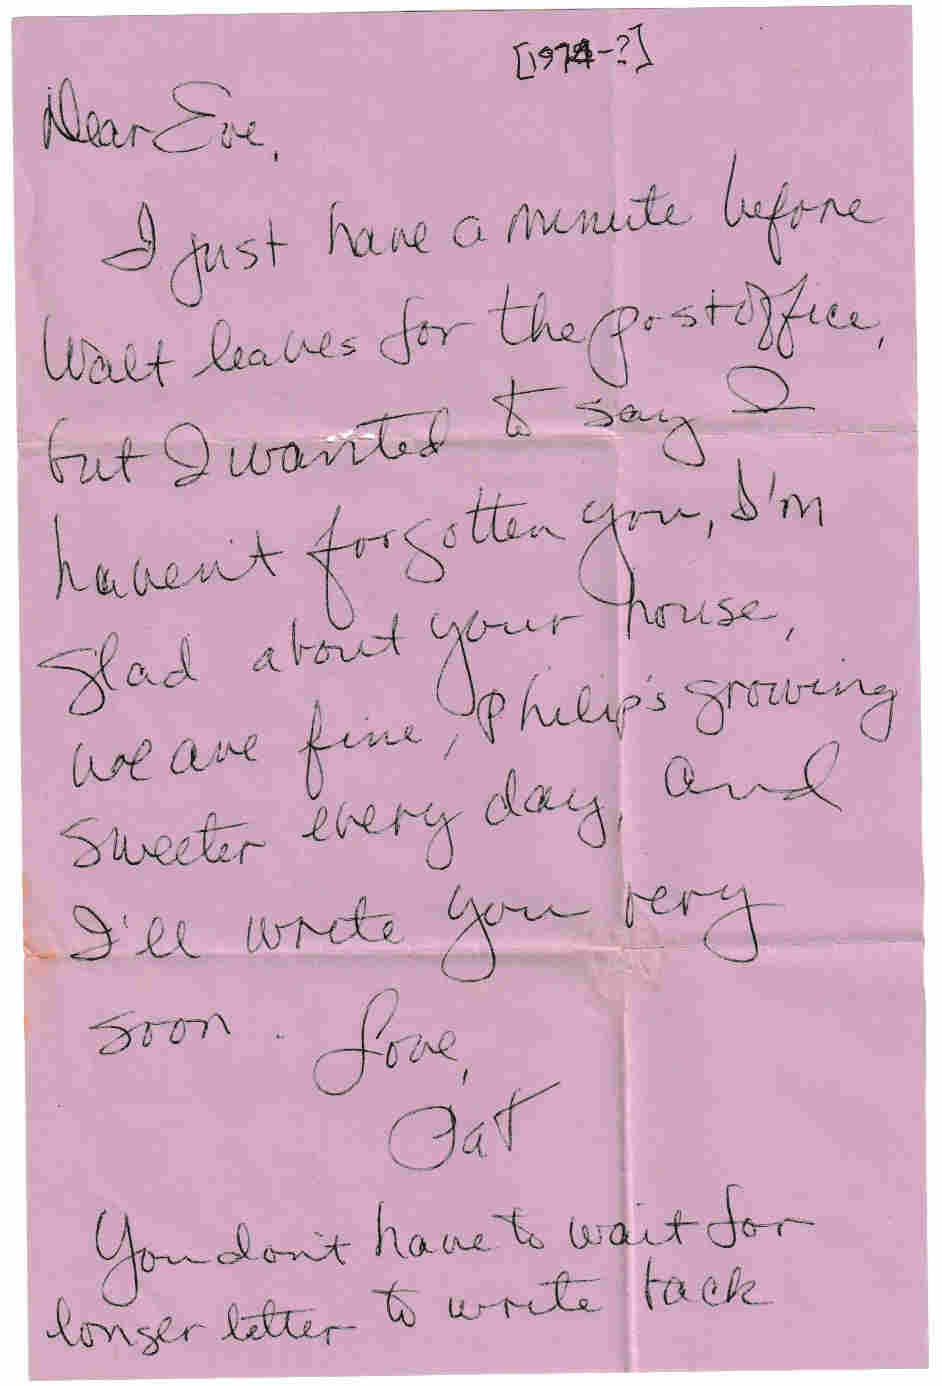 [1974-?]
Dear Eve,
I just have a minute before
Walt leaves for the post office,
but I wanted to say I
haven't forgotten you, I'm
glad about your house,
we are fine, Philip's growing
sweeter every day, and
I'll write you very
soon. Love,
Pat
You don't have to wait for
longer letter to write back